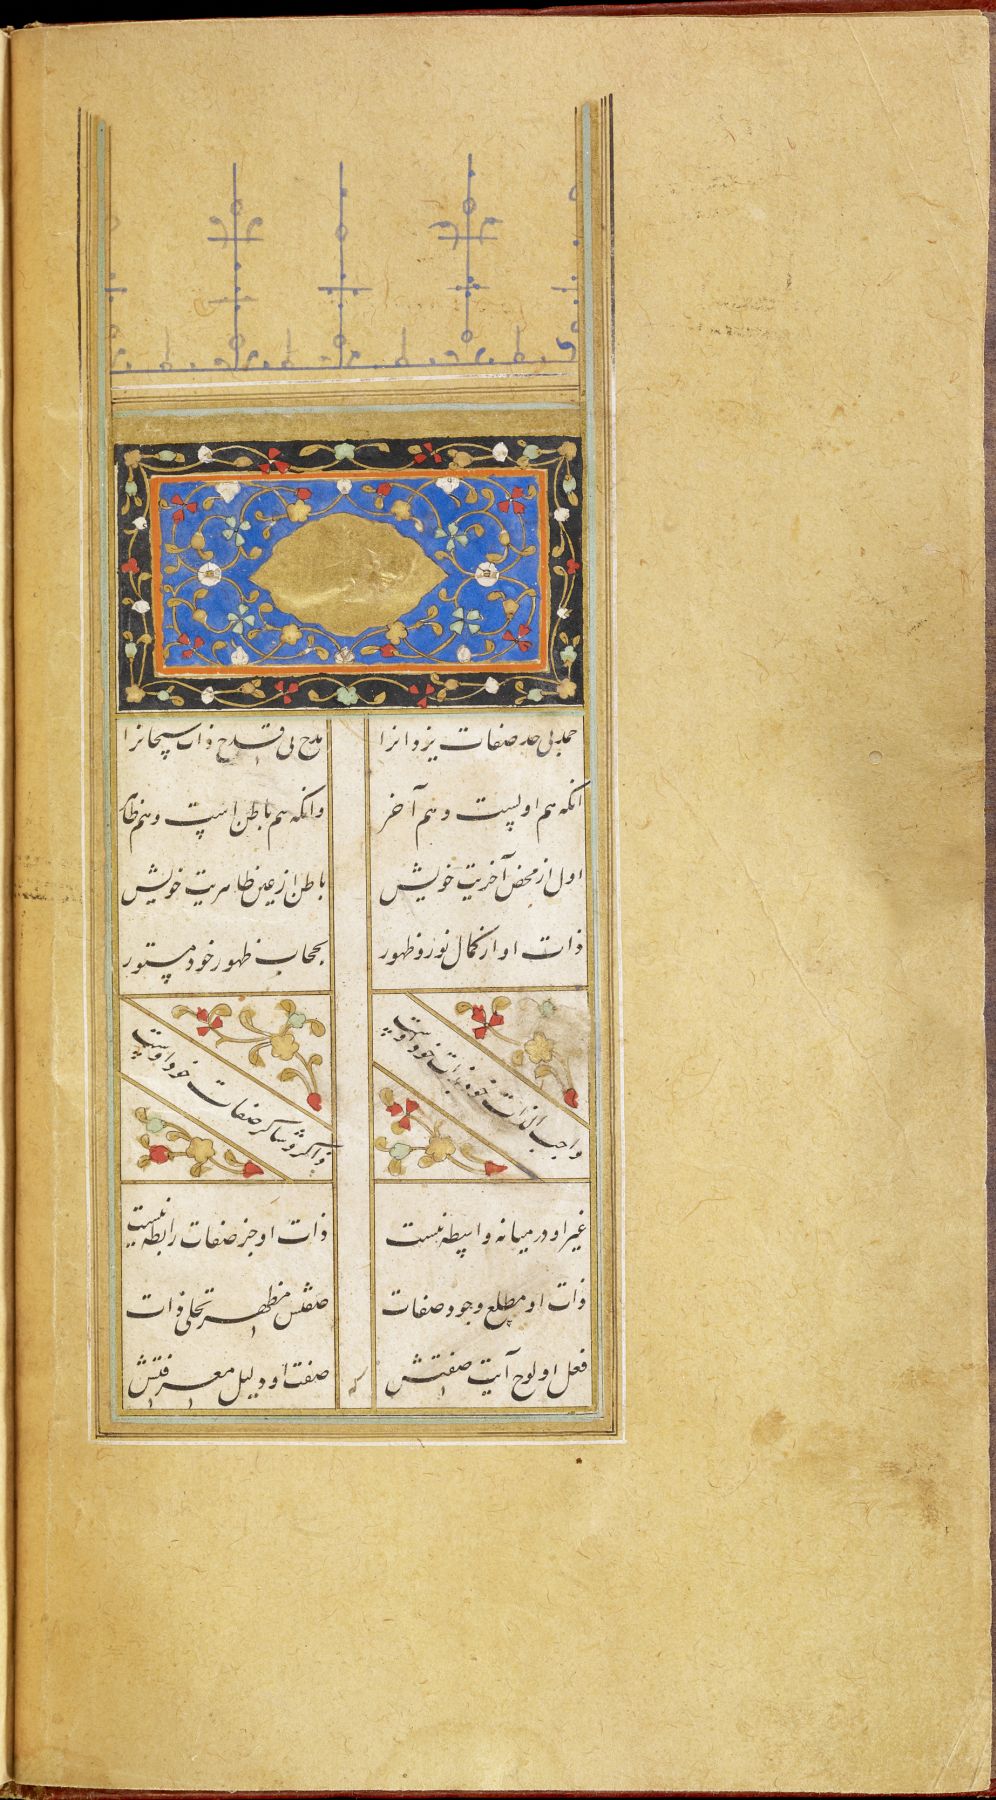 حمد بی حد صفات یزدانرا مدح بی قدح ذات سبحانرا
آنکه هم اولست و هم آخر وانکه هم باطن است و هم ظا
اول از محض آخریت خویش باطن از عین ظاهریت خویش
ذات او از کمال نور و ظهور بحجاب ظهور خود مستور
واجب الذات خود بذات خود اوست ذاکر و شاکر صفات خود اوست
غیر او در میانه واسطه نیست ذات او جز صفات رابطه نیست
ذات او مطلع وجود صفات صفتش مظهر تجلی ذات
فعل او لوح آیت صفتش صفت او دلیل معرفتش